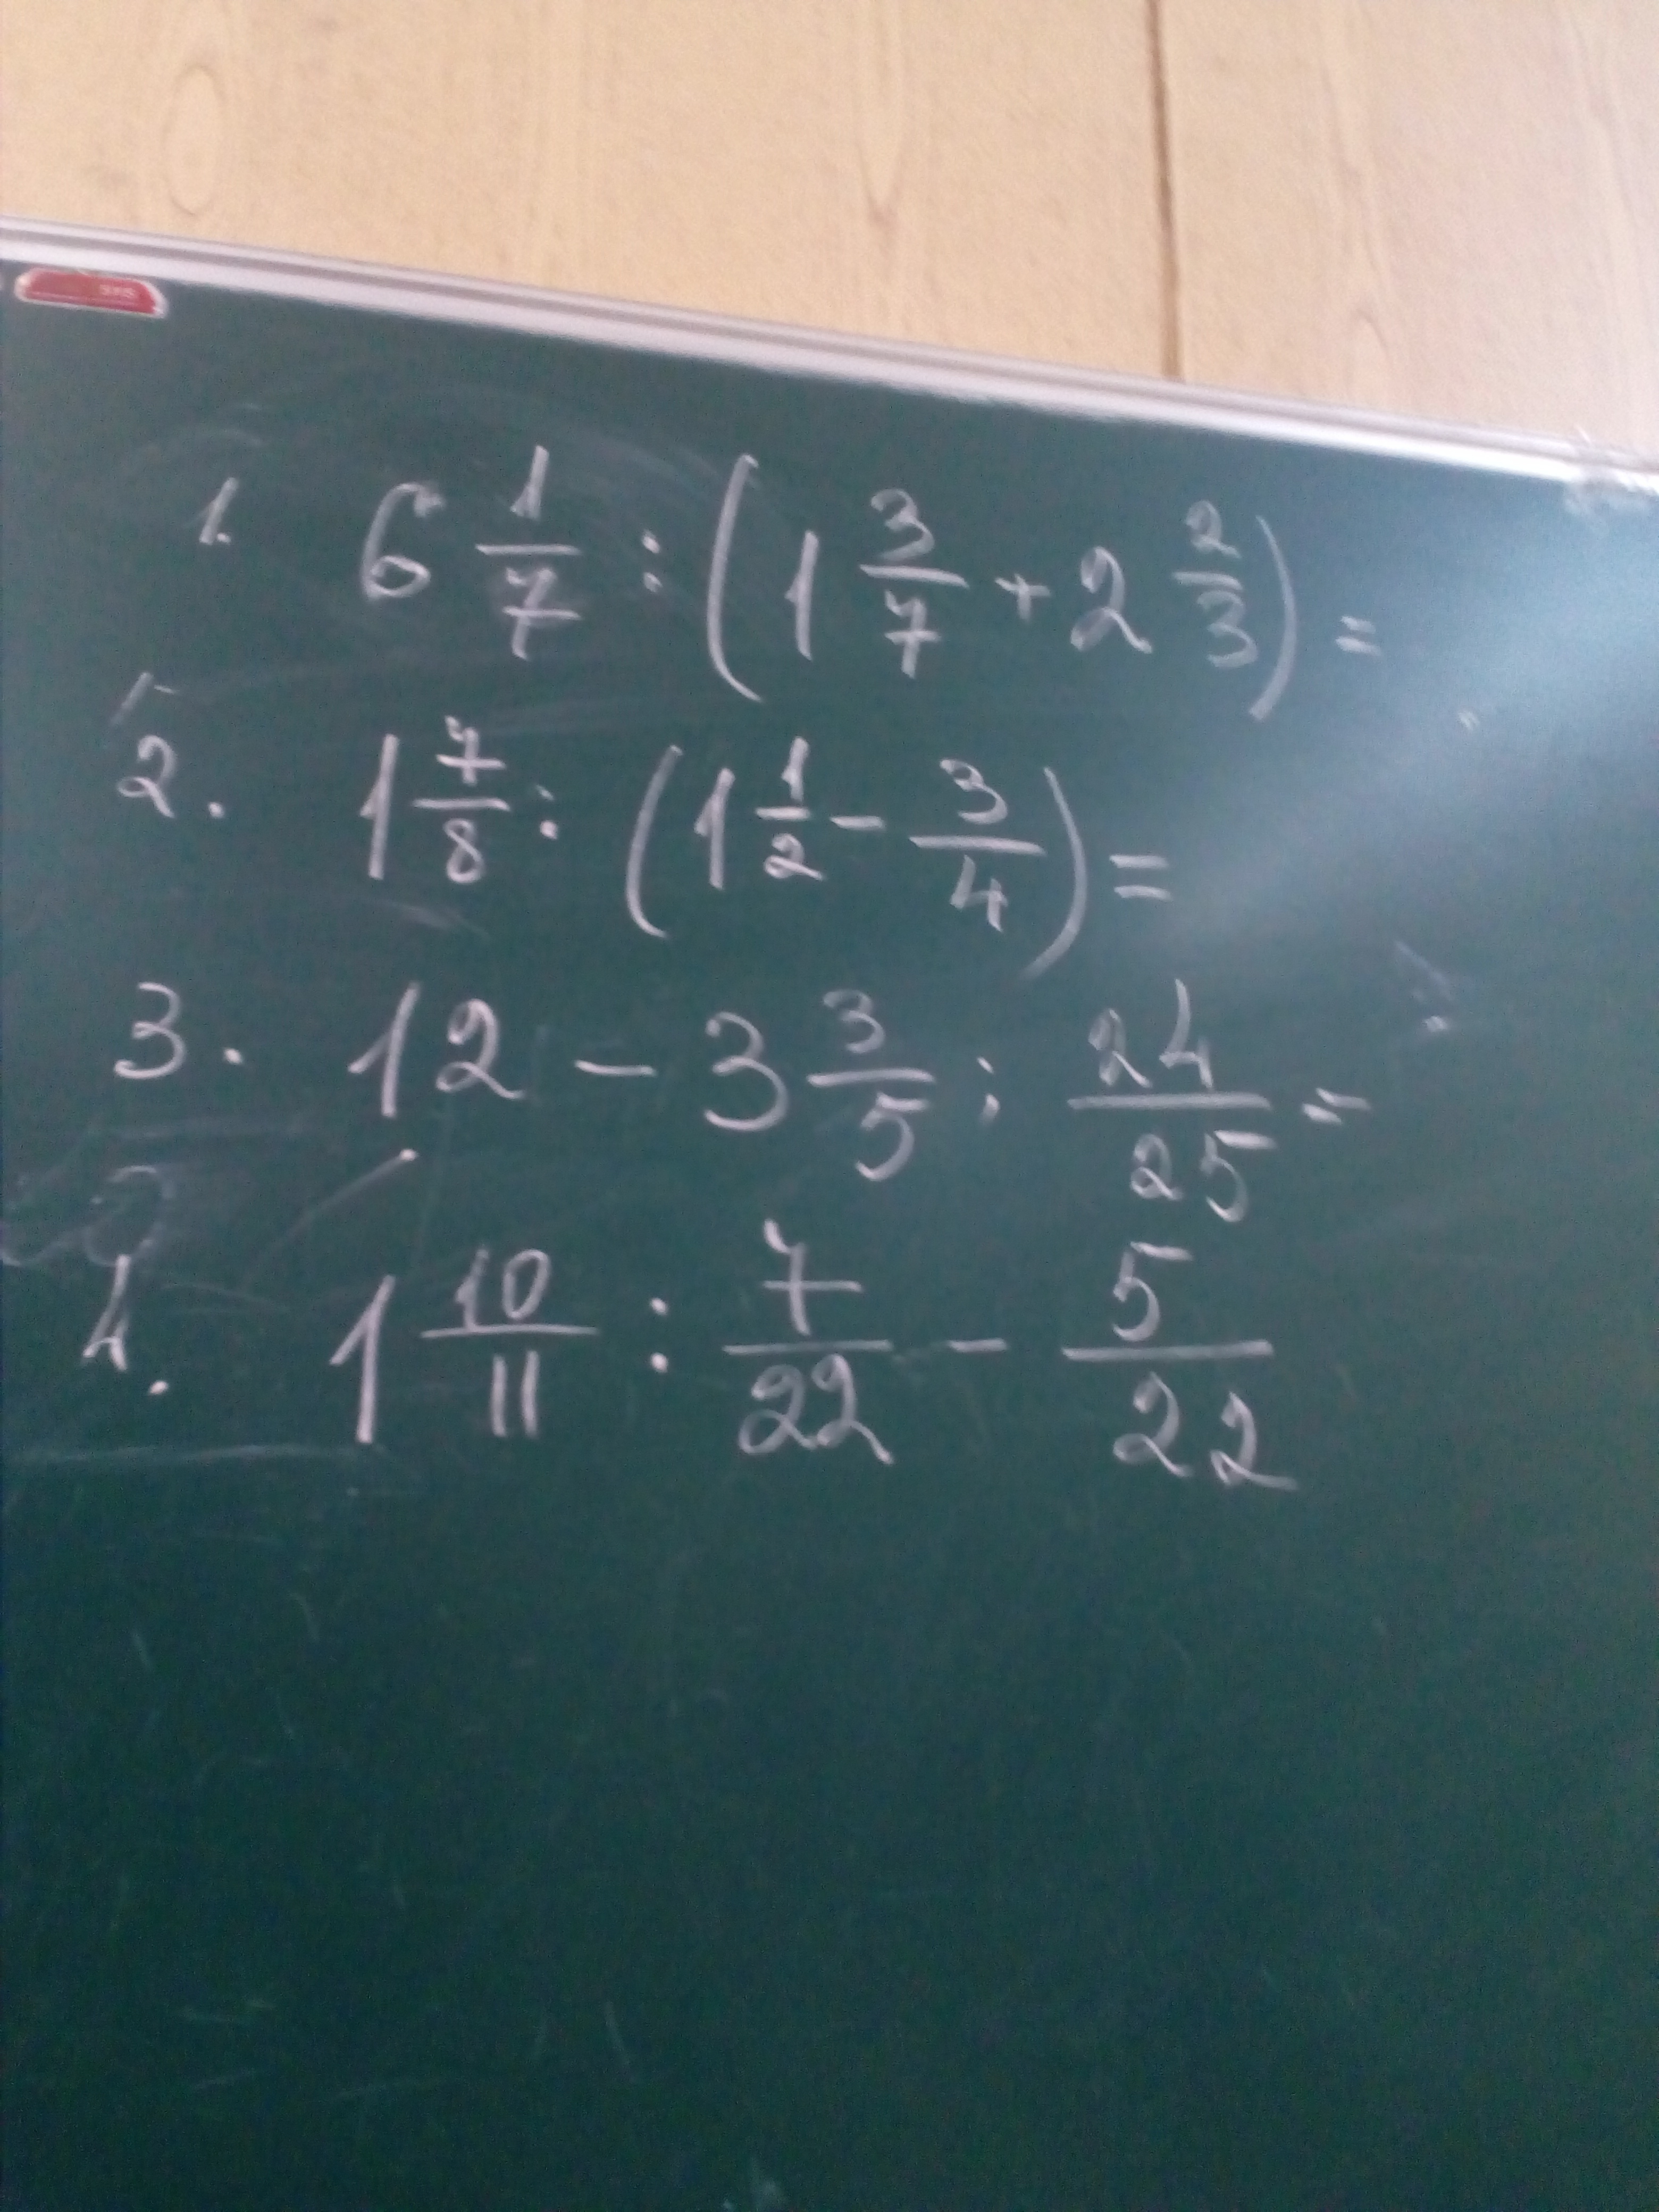 1. 6 1/7 : (1 3/7 + 2 2/3) =
2. 1 7/8 : (1 1/2 - 3/4) =
3. 12 - 3 3/5 : 24/25 =
4. 1 10/11 : 7/22 - 5/22